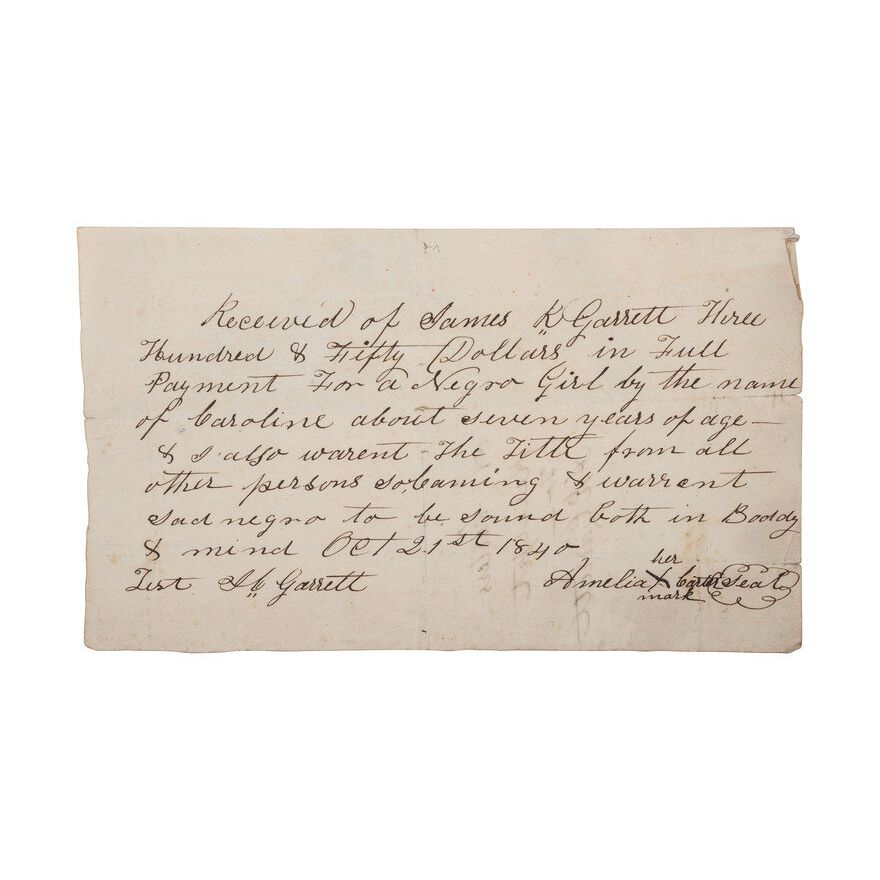 Receivèd of James K Garrett Three
Hundred & Fifty Dollars in Full
Payment For a Negro Girl by the name
of Caroline about seven years of age —
& I also warent The Title from all
other persons so Claming & warrent
sad negro to be sound both in Boddy
& mind Oct 21st 1840
her
Test J C Garrett Amelia X Carter Seal
mark